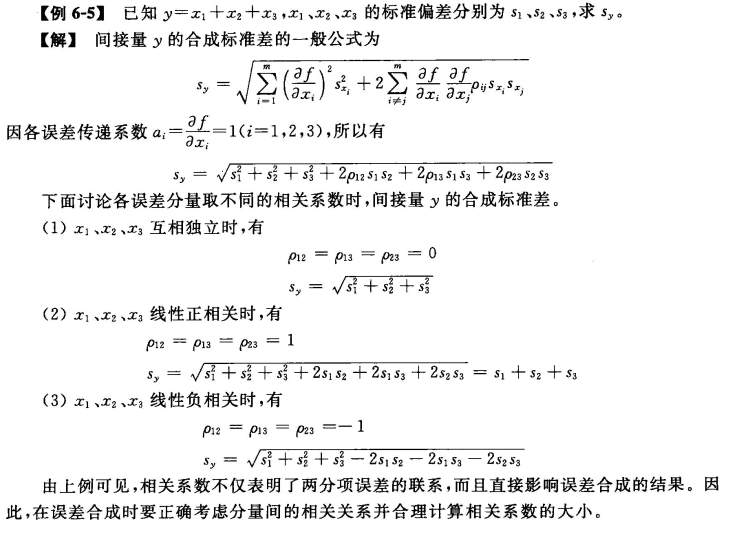 【例 6-5】 已知 y=x₁+x₂+x₃,x₁、x₂、x₃ 的标准偏差分别为 s₁、s₂、s₃,求 s_y。
【解】 间接量 y 的合成标准差的一般公式为
s_y = √(∑_{i=1}^{m} (∂f/∂x_i)² s²_{x_i} + 2∑_{i≠j}^{m} ∂f/∂x_i ∂f/∂x_j ρ_{ij} s_{x_i} s_{x_j})
因各误差传递系数 a_i=∂f/∂x_i=1(i=1,2,3),所以有
s_y = √(s₁²+s₂²+s₃²+2ρ₁₂s₁s₂+2ρ₁₃s₁s₃+2ρ₂₃s₂s₃)
下面讨论各误差分量取不同的相关系数时,间接量 y 的合成标准差。
(1) x₁、x₂、x₃ 互相独立时,有
ρ₁₂ = ρ₁₃ = ρ₂₃ = 0
s_y = √(s₁²+s₂²+s₃²)
(2) x₁、x₂、x₃ 线性正相关时,有
ρ₁₂ = ρ₁₃ = ρ₂₃ = 1
s_y = √(s₁²+s₂²+s₃²+2s₁s₂+2s₁s₃+2s₂s₃) = s₁+s₂+s₃
(3) x₁、x₂、x₃ 线性负相关时,有
ρ₁₂ = ρ₁₃ = ρ₂₃ =-1
s_y = √(s₁²+s₂²+s₃²-2s₁s₂-2s₁s₃-2s₂s₃)
由上例可见,相关系数不仅表明了两分项误差的联系,而且直接影响误差合成的结果。因
此,在误差合成时要正确考虑分量间的相关关系并合理计算相关系数的大小。